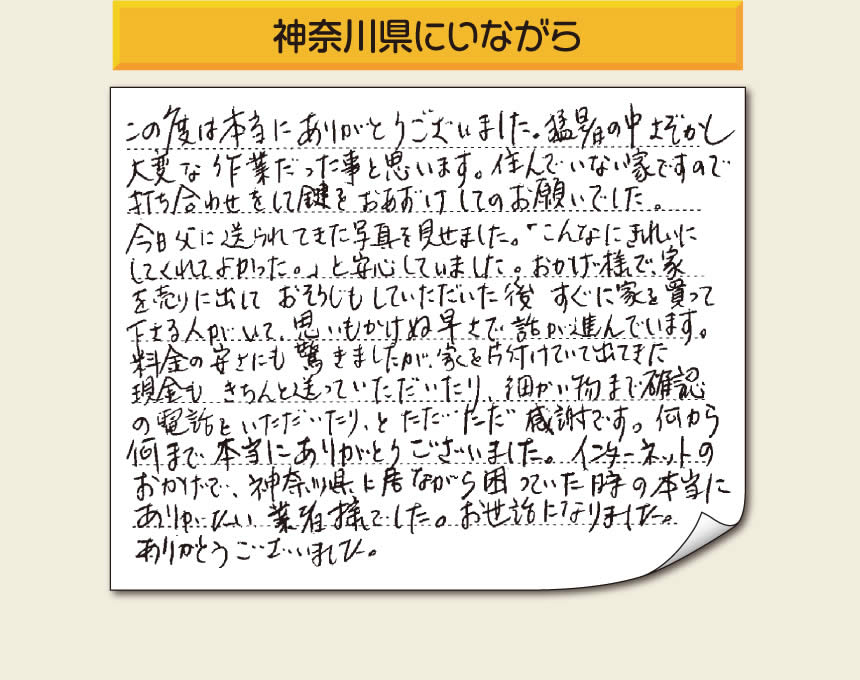 神奈川県にいながら
この度は本当にありがとうございました。猛暑の中さぞかし
大変な作業だった事と思います。住んでいない家ですので
打ち合わせをして鍵をおあずけしてのお願いでした。
今日父に送られてきた写真を見せました。「こんなにきれいに
してくれてよかった。」と安心していました。おかげ様で、家
を売りに出して おそうじもしていただいた後 すぐに家を買って
下さる人がいて、思いもかけぬ早さで話が進んでいます。
料金の安さにも驚きましたが、家を片付けていて出てきた
現金も きちんと送っていただいたり、細かい物まで確認
の電話をいただいたり、と ただただ感謝です。何から
何まで本当にありがとうございました。インターネットの
おかげで、神奈川県に居ながら困っていた時の本当に
ありがたい業者様でした。お世話になりました。
ありがとうございました。